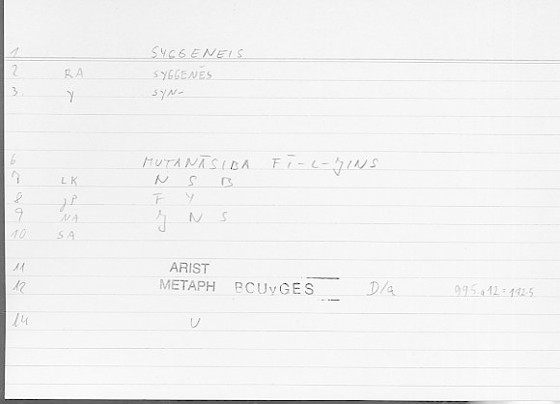 1 SYGGENEIS
2 RA SYGGENĒS
3. Y SYN-
6 MUTANĀSIBA FĪ-L-ǦINS
7 LK N S B
8 JP F Y
9 NA Ǧ N S
10 SA
11 ARIST
12 METAPH BCUyGES D/a 995a12=1925
14 U